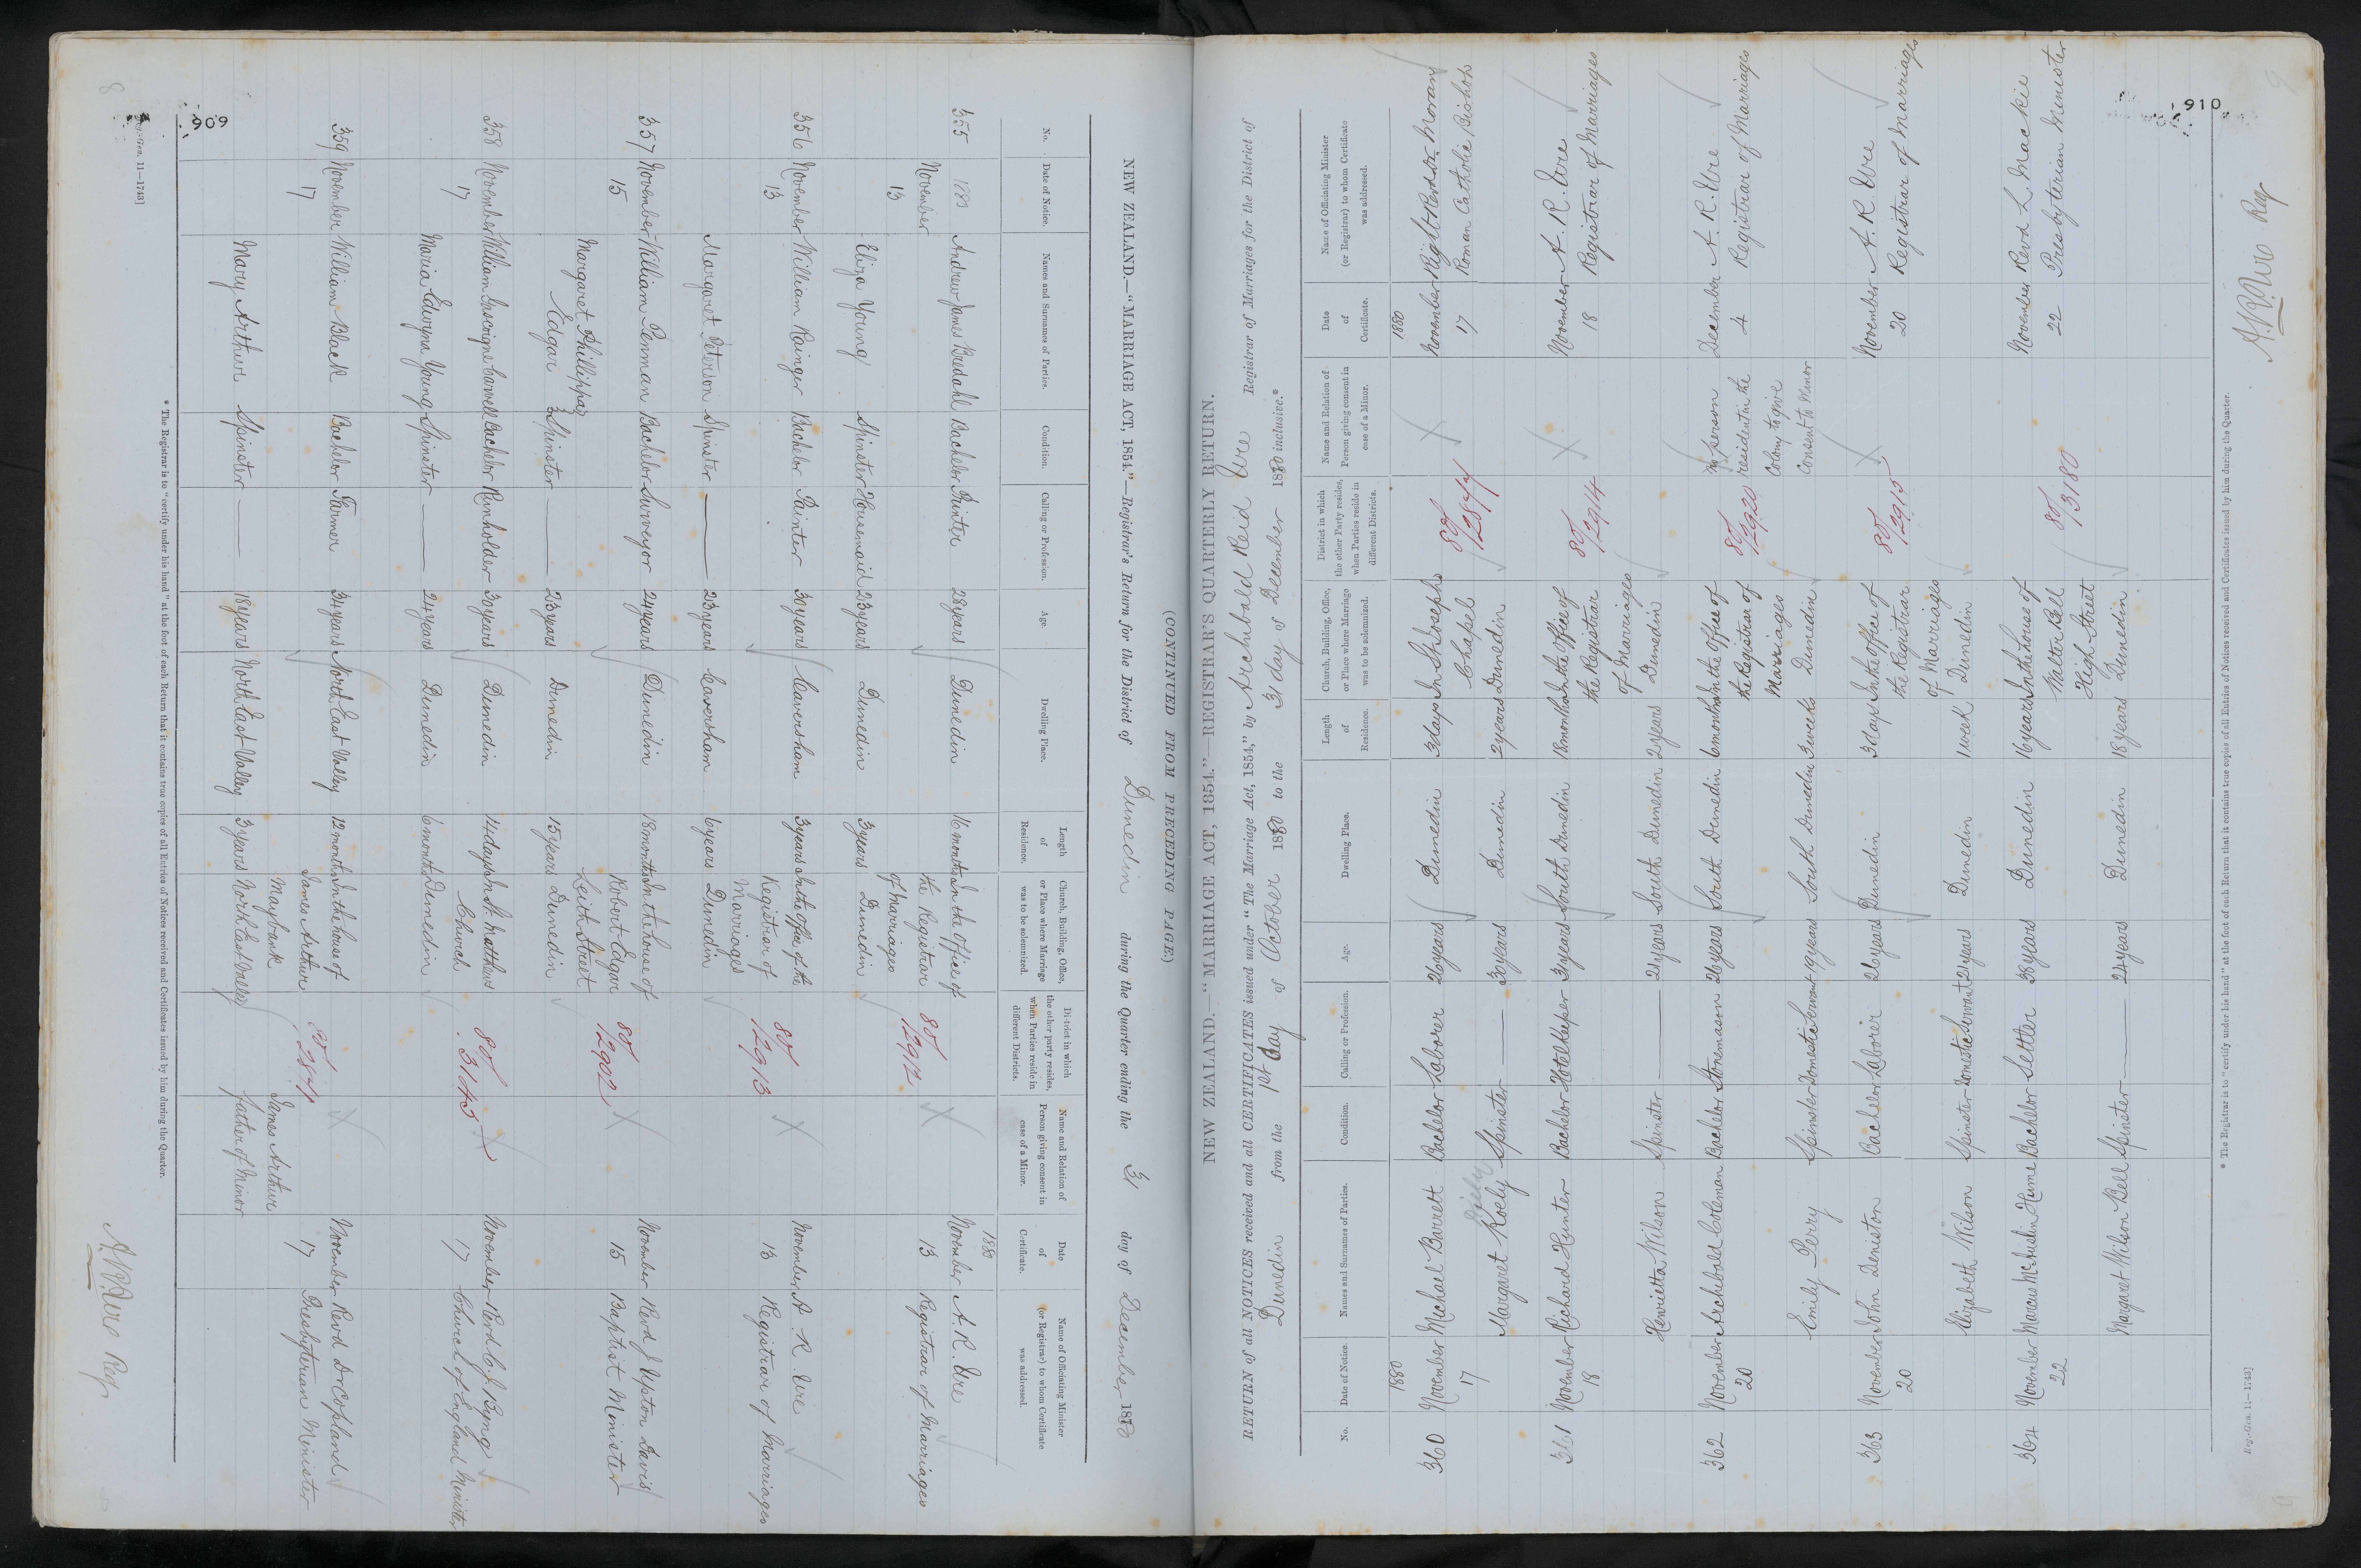 909
(CONTINUED FROM PRECEDING PAGE.)
NEW ZEALAND.—"MARRIAGE ACT, 1854."—Registrar's Return for the District of Dunedin during the Quarter ending the 31 day of December 1880
No. Date of Notice. Names and Surnames of Parties. Condition. Calling or Profession. Age. Dwelling Place. Length of Residence. Church, Building, Office, or Place where Marriage was to be solemnized. District in which the other party resides, when Parties reside in different Districts. Name and Relation of Person giving consent in case of a Minor. Date of Certificate. Name of Officiating Minister (or Registrar) to whom Certificate was addressed.
355 1880 November 13 Andrew James Bredahl Bachelor Printer 28 years Dunedin 16 months In the Office of the Registrar of Marriages Dunedin 80/2912 X 1880 November 13 A. R. Ure Registrar of Marriages
Eliza Young Spinster Housemaid 23 years Dunedin 3 years
356 November 13 William Rainger Bachelor Painter 30 years Caversham 3 years In the office of the Registrar of Marriages Dunedin 80/2913 X November 13 A. R. Ure Registrar of Marriages
Margaret Peterson Spinster — 23 years Caversham 6 years
357 November 15 William Penman Bachelor Surveyor 24 years Dunedin 18 months In the house of Robert Edgar Leith Street Dunedin 80/2902 X November 15 Revd J Upton Davis Baptist Minister
Margaret Phillippa Edgar Spinster — 23 years Dunedin 15 years
358 November 17 William Gascoigne Cavell Bachelor Runholder 30 years Dunedin 14 days In St. Matthews Church Dunedin 80/3145 X November 17 Revd C. J. Byng Church of England Minister
Maria Edwyna Young Spinster — 24 years Dunedin 6 months
359 November 17 William Black Bachelor Farmer 34 years North East Valley 12 months In the house of James Arthur Maybank North East Valley X November 17 Revd Dr Copland Presbyterian Minister
Mary Arthur Spinster — 18 years North East Valley 3 years James Arthur father of Minor
* The Registrar is to "certify under his hand" at the foot of each Return that it contains true copies of all Entries of Notices received and Certificates issued by him during the Quarter.
Reg.-Gen. 11—1743]
A. R. Ure Regr
910
NEW ZEALAND.—"MARRIAGE ACT, 1854."—REGISTRAR'S QUARTERLY RETURN.
RETURN of all NOTICES received and all CERTIFICATES issued under "The Marriage Act, 1854," by Archibald Reid Ure Registrar of Marriages for the District of
Dunedin from the 1st day of October 1880 to the 31 day of December 1880 inclusive.*
No. Date of Notice. Names and Surnames of Parties. Condition. Calling or Profession. Age. Dwelling Place. Length of Residence. Church, Building, Office, or Place where Marriage was to be solemnized. District in which the other Party resides, when Parties reside in different Districts. Name and Relation of Person giving consent in case of a Minor. Date of Certificate. Name of Officiating Minister (or Registrar) to whom Certificate was addressed.
360 1880 November 17 Michael Barrett Bachelor Laborer 26 years Dunedin 3 days In St Josephs Chapel Dunedin X 1880 November 17 Right Revd Dr Moran Roman Catholic Bishop
Margaret Spinster — 30 years Dunedin 2 years
361 November 18 Richard Hunter Bachelor Hotelkeeper 31 years South Dunedin 18 months In the Office of the Registrar of Marriages Dunedin 80/2914 X November 18 A. R. Ure Registrar of Marriages
Henrietta Wilson Spinster — 21 years South Dunedin 2 years
362 November 20 Archibald Coleman Bachelor Stonemason 26 years South Dunedin 6 months In the Office of the Registrar of Marriages Dunedin 80/2920 no person resident in the Colony to give Consent to Minor December 4 A. R. Ure Registrar of Marriages
Emily Perry Spinster Domestic Servant 19 years South Dunedin 3 weeks
363 November 20 John Deniston Bachelor Laborer 26 years Dunedin 3 days In the Office of the Registrar of Marriages Dunedin 80/2915 X November 20 A. R. Ure Registrar of Marriages
Elizabeth Wilson Spinster Domestic Servant 21 years Dunedin 1 week
364 November 22 Marcus Hume Bachelor Settler 38 years Dunedin 16 years In the house of Walter Bell High Street Dunedin 80/3180 November 22 Revd L. Mackie Presbyterian Minister
Margaret Wilson Bell Spinster — 24 years Dunedin 18 years
* The Registrar is to "certify under his hand" at the foot of each Return that it contains true copies of all Entries of Notices received and Certificates issued by him during the Quarter.
Reg.-Gen. 11—1743]
A. R. Ure Regr